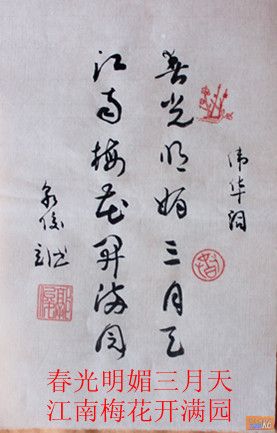 春光明媚三月天
江南梅花开满园
春光明媚三月天
江南梅花开满园